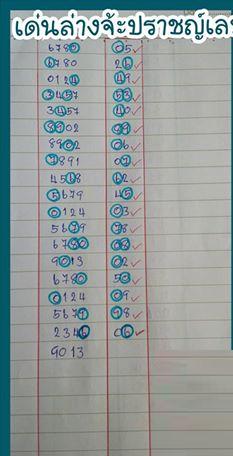 เด่นล่างจ้ะปราชญ์เล
6780 05✓
6780 26✓
0124 49✓
3457 53✓
3457 40✓
8902 99✓
8902 06✓
7891 07✓
4568 62✓
5679 45✓
0124 03✓
5679 78✓
6780 08✓
9013 02✓
6780 50✓
0124 09✓
5679 98✓
2346 06✓
9013